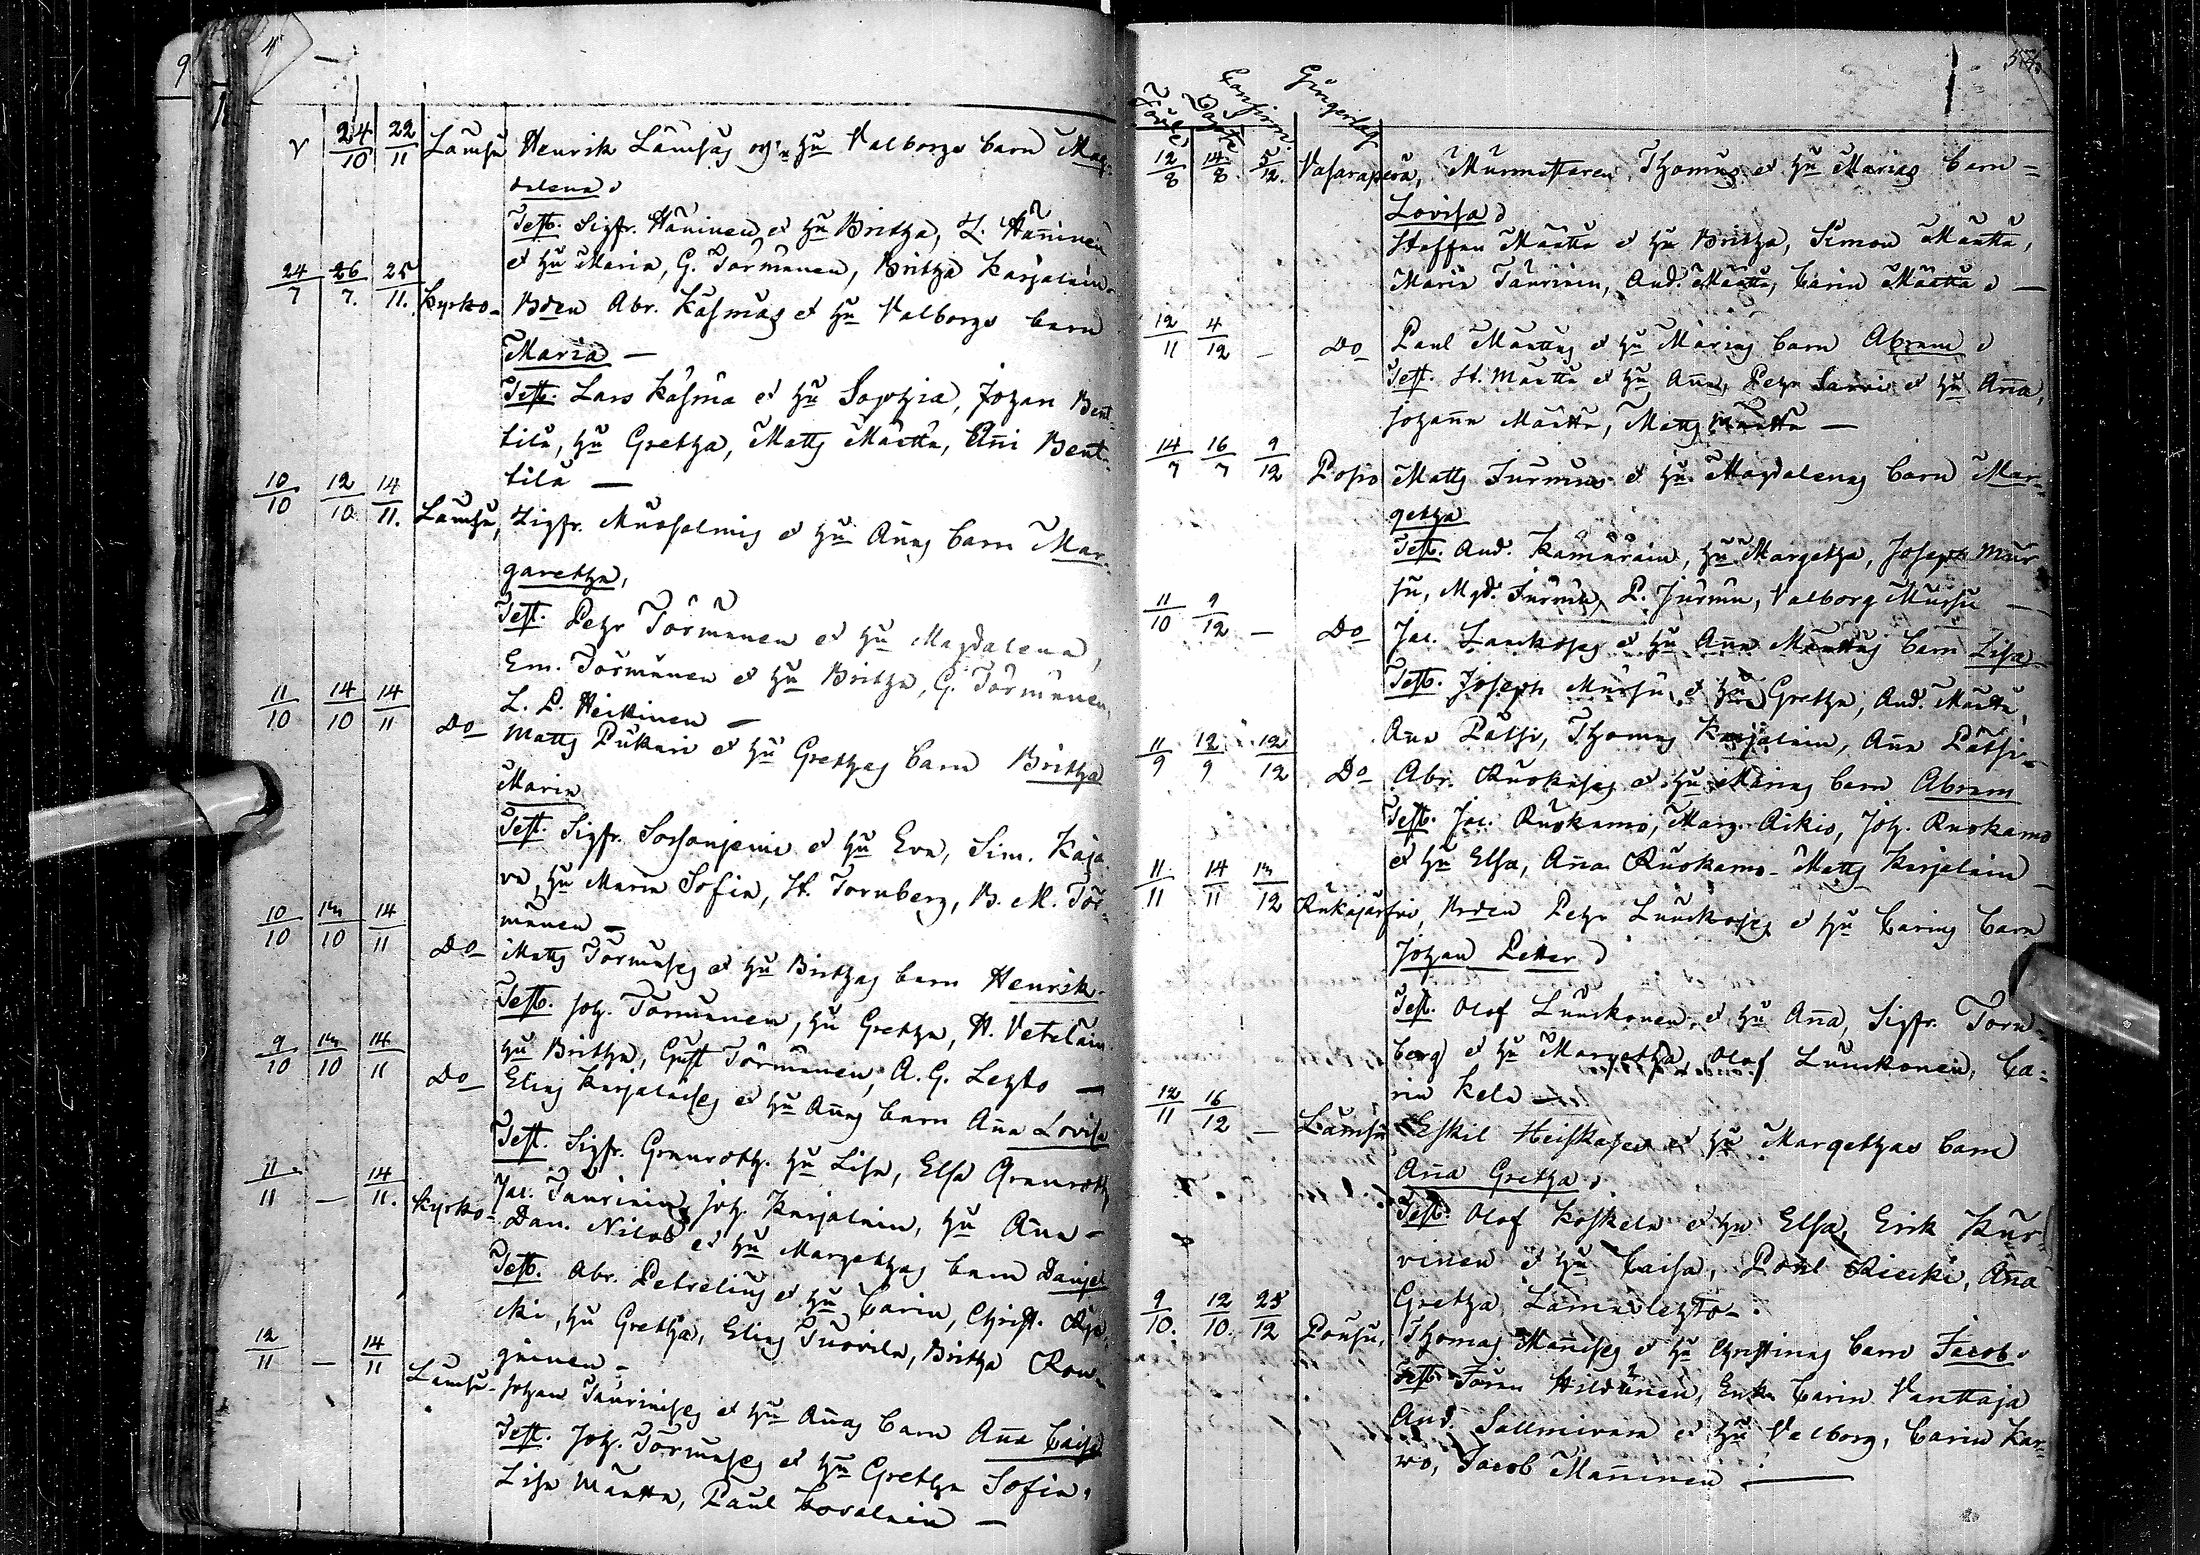 9
4
24/10 22/11 Lämsä Henrik Lämsäs och hu Valborgs barn Mag-
dalena
Test. Sigfr. Hänninen et hu Britha, L. Hänninen
et hu Maria, G. Törmänen, Britha Karjalain.
24/7 26/7. 25/11. Kyrko- Bden Abr. Käsmäs et hu Valborgs barn
Maria —
Test. Lars Käsmä et hu Sophia, Johan Bent-
tilä, hu Gretha, Matts Määttä, Ani Bent-
tilä —
10/10 12/10 14/11. Lämsä, Sigfr. Mursalmis et hu Annas barn Mar-
garetha,
Test. Pehr Törmänen et hu Magdalena,
Em. Törmänen et hu Britha, G. Törmänen,
L. L. Heikinen —
11/10 14/10 14/11 Do Matts Pukari et hu Grethas barn Britha
Maria
Test. Sigfr. Sorsanjemi et hu Eva, Sim. Kaja-
va, hu Maria Sofia, H. Tornberg, B. M. Tör-
mänen —
10/10 13/10 14/11 Do Matts Törmäses et hu Brithas barn Henrik
Test. Joh. Törmänen, hu Gretha, H. Veteläin.
hu Britha, Gust Törmänen, A. G. Lehto —
9/10 13/10 14/11 Do Elias Karjalaises et hu Annas barn Anna Lovisa
Test. Sigfr. Granroth. hu Lisa, Elsa Granroth,
Jac. Taurinin, Joh. Karjalain, hu Anna —
11/11 — 14/11. Kyrko- Dan. Nilas et hu Margethas barn Daniel
Test. Abr. Petrelius et hu Carin, Christ.
hu Gretha, Elias Tuovila, Britha
12/11 — 14/11 Lämsä- Johan Taurinises et hu Annas barn Anna Caisa
Test. Joh. Törmäses et hu Gretha Sofia,
Lisa Määttä, Paul Kovalain —
54.
Född Döpt Confirm. Gingerlag
12/8 14/8 5/12. Vasaraperä, Murmästaren Thomas et hu Marias barn =
Lovisa
Staffan Määttä et hu Britha, Simon Määttä,
Maria Taurinin, And. Määttä, Carin Määttä —
12/11 4/12 — Do Paul Määttäs et hu Marias barn Abram
Test. H. Määttä et hu Anna, Pehr Sarvi et hu Anna,
Johanna Määttä, Matts Määttä —
14/7 16/7 9/12 Posio Matts Jurmus et hu Magdalenas barn Mar-
getha
Test. And. Kämäräin, hu Margetha, Joseph Mur-
su, Mgd. Jurmu, P. Jurmu, Valborg Mursu —
11/10 9/12 — Do Jac. Lauckoses et hu Anna Määttäs barn Lisa
Test. Joseph Mursu, et hu Gretha, And. Määttä,
Anna Pätsi, Thomas Karjalain, Anna Pätsi —
11/9 12/9 12/12 Do Abr. Ruokases et hu Marias barn Abram
Test. Jac. Ruokamo, Marg. Aikio, Joh. Ruokamo
et hu Elsa, Anna Ruokamo - Matts Karjalain —
11/11 14/11 13/12 Kukajärfvi, Bden Pehr Luuckoses et hu Carins barn
Johan Petter
Test. Olof Luuckonen, et hu Anna, Sigfr. Torn-
berg et hu Margetha, Olof Luuckonen, Ca-
rin Kela —
12/11 16/12 — Lämsä Eskil Heiskases et hu Margethas barn
Anna Gretha,
Test. Olof Koskela et hu Elsa, Erik Kur-
vinen et hu Caisa, Påhl Riecki, Anna
Gretha Lämsälehto -.
9/10. 12/10. 25/12 Pousu, Thomas Manises et hu Christinas barn Jacob.
Test. Jören Hildunen, Enk. Carin Vanttaja
And. Sallmivara et hu Valborg, Carin Kar-
wo, Jacob Manninen —